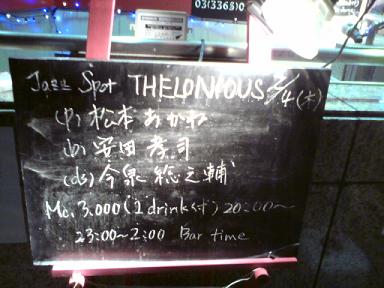 03(3365)0
Jazz Spot THELONIOUS 2/4(木)
(p) 松本あかね
(b) 安田幸司
(ds) 今泉総之輔
Mc. 3.000(1drink付) 20:00〜
23:00〜2:00 Bar time